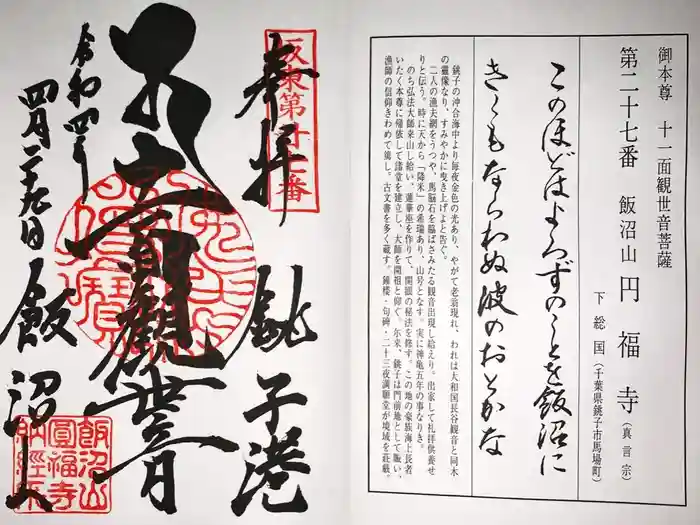 御本尊 十一面観世音菩薩
第二十七番 飯沼山 円福寺（真言宗）
下総国（千葉県銚子市馬場町）
このほどはよろずのことを飯沼に
きくもならわぬ波のおとかな
銚子の沖合海中より毎夜金色の光あり、やがて老翁現れ、われは大和国長谷観音と同木
の霊像なり、すみやかに曳き上げよと告ぐ。
二人の漁夫網をうつや、馬脳石を脇ばさみたる観音出現し給えり。出家して礼拝供養せ
りと伝う。時に天から「降米」の希瑞あり、山号となす。実に神亀五年の事なりき。
のち弘法大師来山し給い、蓮華座を作りて、開眼の秘法を修す。この地の豪族海上長者
いたく本尊に帰依して諸堂を建立し、大師を開祖と仰ぐ。尓来、銚子は門前地として賑い、
漁師の信仰きわめて篤し。古文書を多く蔵す。鐘楼・句碑・二十三夜満願堂が境域を荘厳。
坂東第廿七番
奉拝 銚子港
大悲観世音
飯沼山
令和四年
四月二十九日
飯沼山
圓福寺
納経所